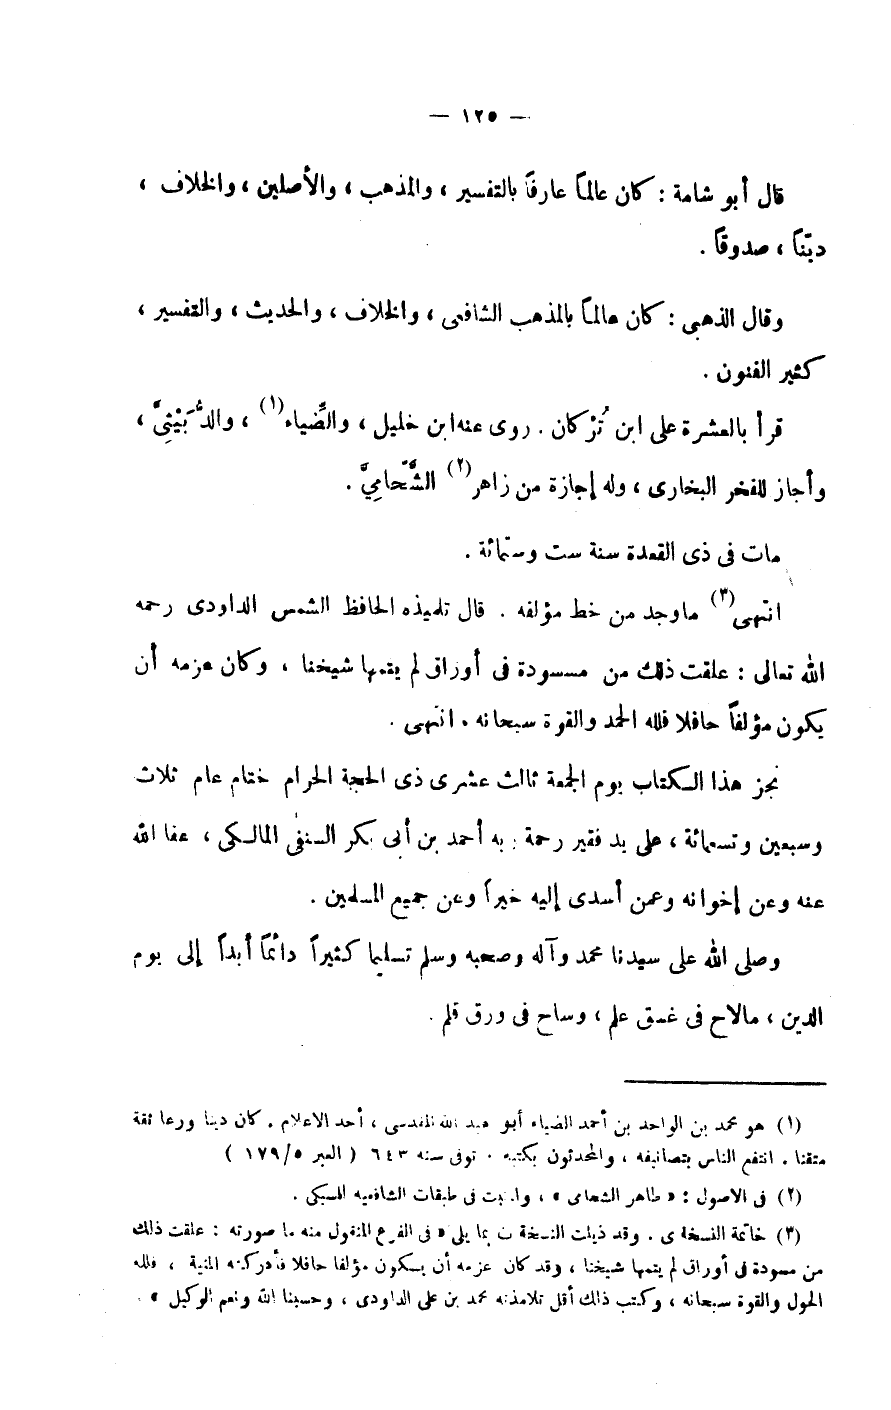 — ١٢٥ —
قال أبو شامة : كان عالماً عارفاً بالتفسير ، والمذهب ، والأصلين ، والخلاف ،
ديّناً ، صدوقاً .
وقال الذهبي : كان عالماً بالمذهب الشافعى ، والخلاف ، والحديث ، والتفسير ،
كثير الفنون .
قرأ بالعشرة على ابن تُرْكان . روى عنه ابن خليل ، والضِّياء(١) ، والدُّبَيْثِىّ ،
وأجاز للفخر البخارى ، وله إجازة من زاهر(٢) الشَّحَّامِيّ .
مات فى ذى القعدة سنة ست وستمائة .
انتهى(٣) ماوجد من خط مؤلفه . قال تلميذه الحافظ الشمس الداودى رحمه
الله تعالى : علقت ذلك من مسودة فى أوراق لم يتمها شيخنا ، وكان عزمه أن
يكون مؤلفاً حافلا فلله الحمد والقوة سبحانه . انتهى .
نجز هذا الكتاب يوم الجمعة ثالث عشرى ذى الحجة الحرام ختام عام ثلاث
وسبعين وتسعمائة ، على يد فقير رحمة ربه أحمد بن أبى بكر السنفى المالكى ، عفا الله
عنه وعن إخوانه وعمن أسدى إليه خيراً وعن جميع المسلمين .
وصلى الله على سيدنا محمد وآله وصحبه وسلم تسليما كثيراً دائماً أبداً إلى يوم
الدين ، مالاح فى غسق علم ، وساح فى ورق قلم .
(١) هو محمد بن الواحد بن أحمد الضياء أبو عبد الله المقدسى ، أحد الاعلام . كان دينا ورعا ثقة
متقنا . انتفع الناس بتصانيفه ، والمحدثون بكتبه . توفى سنه ٦٤٣ ( العبر ١٧٩/٥ )
(٢) فى الاصول : « طاهر الشحامى » ، والمثبت فى طبقات الشافعيه للسبكى .
(٣) خاتمة النسخة ى . وقد ذيلت النسخة ت بما يلى « فى الفرع المنقول منه ما صورته : علقت ذلك
من مسودة فى أوراق لم يتمها شيخنا ، وقد كان عزمه أن يسكون مؤلفا حافلا فأدركته المنية ، فلله
الحول والقوة سبحانه ، وكتب ذلك أقل تلامذته محمد بن على الداودى ، وحسبنا الله ونعم الوكيل » .